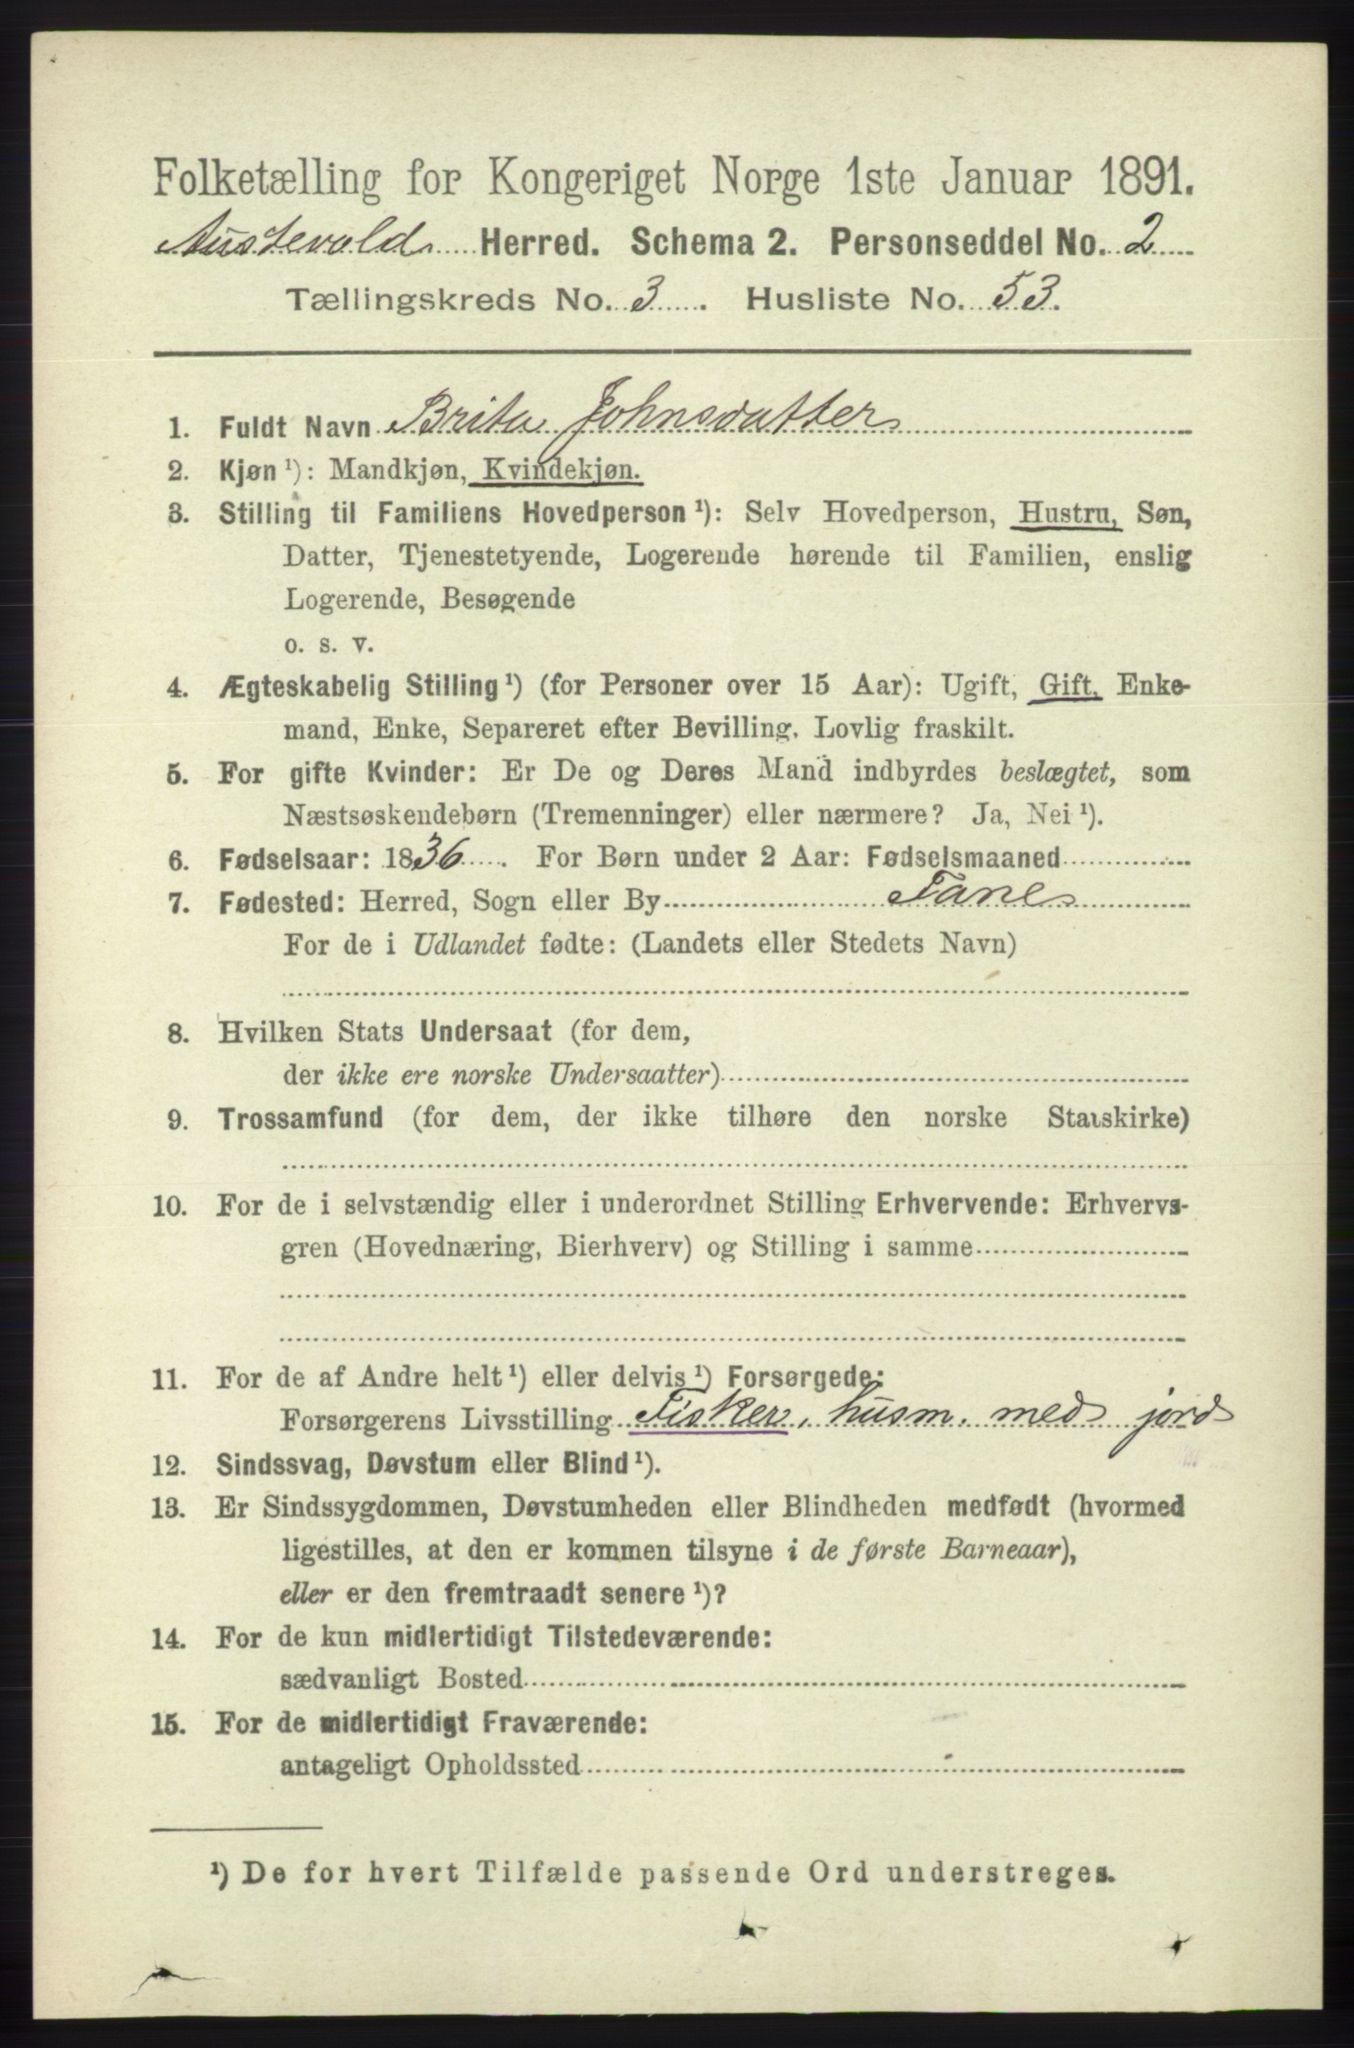 Folketælling for Kongeriget Norge 1ste Januar 1891.
Austevold Herred. Schema 2. Personseddel No. 2
Tællingskreds No. 3. Husliste No. 53.
1. Fuldt Navn Brita Johnsdatter
2. Kjøn ¹): Mandkjøn, Kvindekjøn.
3. Stilling til Familiens Hovedperson ¹): Selv Hovedperson, Hustru, Søn,
Datter, Tjenestetyende, Logerende hørende til Familien, enslig
Logerende, Besøgende
o. s. v.
4. Ægteskabelig Stilling ¹) (for Personer over 15 Aar): Ugift, Gift, Enke-
mand, Enke, Separeret efter Bevilling. Lovlig fraskilt.
5. For gifte Kvinder: Er De og Deres Mand indbyrdes beslægtet, som
Næstsøskendebørn (Tremenninger) eller nærmere? Ja, Nei ¹).
6. Fødselsaar: 1836. For Børn under 2 Aar: Fødselsmaaned
7. Fødested: Herred, Sogn eller By Fane
For de i Udlandet fødte: (Landets eller Stedets Navn)
8. Hvilken Stats Undersaat (for dem,
der ikke ere norske Undersaatter)
9. Trossamfund (for dem, der ikke tilhøre den norske Statskirke)
10. For de i selvstændig eller i underordnet Stilling Erhvervende: Erhvervs-
gren (Hovednæring, Bierhverv) og Stilling i samme
11. For de af Andre helt ¹) eller delvis ¹) Forsørgede:
Forsørgerens Livsstilling Fisker, husm. med jord
12. Sindssvag, Døvstum eller Blind ¹).
13. Er Sindssygdommen, Døvstumheden eller Blindheden medfødt (hvormed
ligestilles, at den er kommen tilsyne i de første Barneaar),
eller er den fremtraadt senere ¹)?
14. For de kun midlertidigt Tilstedeværende:
sædvanligt Bosted
15. For de midlertidigt Fraværende:
antageligt Opholdssted
¹) De for hvert Tilfælde passende Ord understreges.